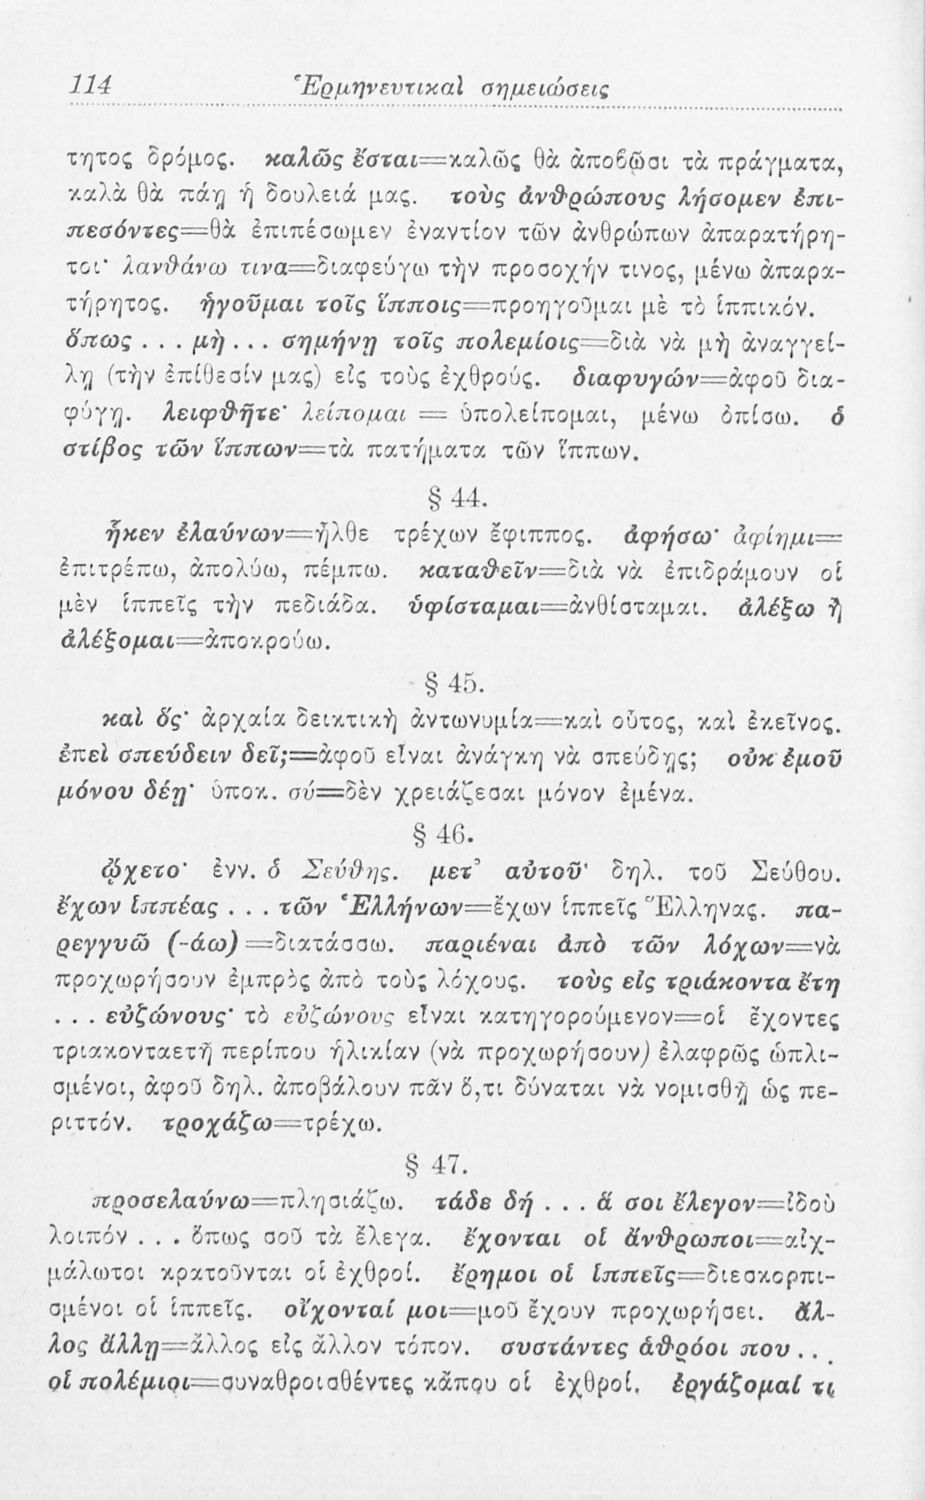 114 Ἑρμηνευτικαὶ σημειώσεις
τητος δρόμος. καλῶς ἔσται=καλῶς θὰ ἀποβῶσι τὰ πράγματα,
καλὰ θὰ πάῃ ἡ δουλειά μας. τοὺς ἀνθρώπους λήσομεν ἐπι-
πεσόντες=θὰ ἐπιπέσωμεν ἐναντίον τῶν ἀνθρώπων ἀπαρατήρη-
τοι· λανθάνω τινα=διαφεύγω τὴν προσοχήν τινος, μένω ἀπαρα-
τήρητος. ἡγοῦμαι τοῖς ἵπποις=προηγοῦμαι μὲ τὸ ἱππικόν.
ὅπως . . . μὴ . . . σημήνῃ τοῖς πολεμίοις=διὰ νὰ μὴ ἀναγγεί-
λῃ (τὴν ἐπίθεσίν μας) εἰς τοὺς ἐχθρούς. διαφυγών=ἀφοῦ δια-
φύγῃ. λειφθῆτε· λείπομαι = ὑπολείπομαι, μένω ὀπίσω. ὁ
στίβος τῶν ἵππων=τὰ πατήματα τῶν ἵππων.
§ 44.
ἧκεν ἐλαύνων=ἦλθε τρέχων ἔφιππος. ἀφήσω· ἀφίημι=
ἐπιτρέπω, ἀπολύω, πέμπω. καταθεῖν=διὰ νὰ ἐπιδράμουν οἱ
μὲν ἱππεῖς τὴν πεδιάδα. ὑφίσταμαι=ἀνθίσταμαι. ἀλέξω ἢ
ἀλέξομαι=ἀποκρούω.
§ 45.
καὶ ὅς· ἀρχαία δεικτικὴ ἀντωνυμία=καὶ οὗτος, καὶ ἐκεῖνος.
ἐπεὶ σπεύδειν δεῖ;=ἀφοῦ εἶναι ἀνάγκη νὰ σπεύδῃς; οὐκ ἐμοῦ
μόνου δέῃ· ὑποκ. σύ=δὲν χρειάζεσαι μόνον ἐμένα.
§ 46.
ᾤχετο· ἐνν. ὁ Σεύθης. μετ᾽ αὐτοῦ· δηλ. τοῦ Σεύθου.
ἔχων ἱππέας . . . τῶν Ἑλλήνων=ἔχων ἱππεῖς Ἕλληνας. πα-
ρεγγυῶ (-άω)=διατάσσω. παριέναι ἀπὸ τῶν λόχων=νὰ
προχωρήσουν ἐμπρὸς ἀπὸ τοὺς λόχους. τοὺς εἰς τριάκοντα ἔτη
. . . εὐζώνους· τὸ εὐζώνους εἶναι κατηγορούμενον=οἱ ἔχοντες
τριακονταετῆ περίπου ἡλικίαν (νὰ προχωρήσουν) ἐλαφρῶς ὡπλι-
σμένοι, ἀφοῦ δηλ. ἀποβάλουν πᾶν ὅ,τι δύναται νὰ νομισθῇ ὡς πε-
ριττόν. τροχάζω=τρέχω.
§ 47.
προσελαύνω=πλησιάζω. τάδε δή . . . ἅ σοι ἔλεγον=ἰδοὺ
λοιπόν . . . ὅπως σοῦ τὰ ἔλεγα. ἔχονται οἱ ἄνθρωποι=αἰχ-
μάλωτοι κρατοῦνται οἱ ἐχθροί. ἔρημοι οἱ ἱππεῖς=διεσκορπι-
σμένοι οἱ ἱππεῖς. οἴχονταί μοι=μοῦ ἔχουν προχωρήσει. ἄλ-
λος ἄλλῃ=ἄλλος εἰς ἄλλον τόπον. συστάντες ἁθρόοι που . . .
οἱ πολέμιοι=συναθροισθέντες κἄπου οἱ ἐχθροί. ἐργάζομαί τι